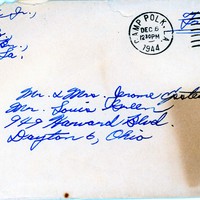 Jr.,
La.
CAMP POLK, LA.
DEC 6
12 30 PM
1944
Mr. & Mrs. Jerome
Mr. Louis Green
949 Harvard Blvd.
Dayton 6, Ohio